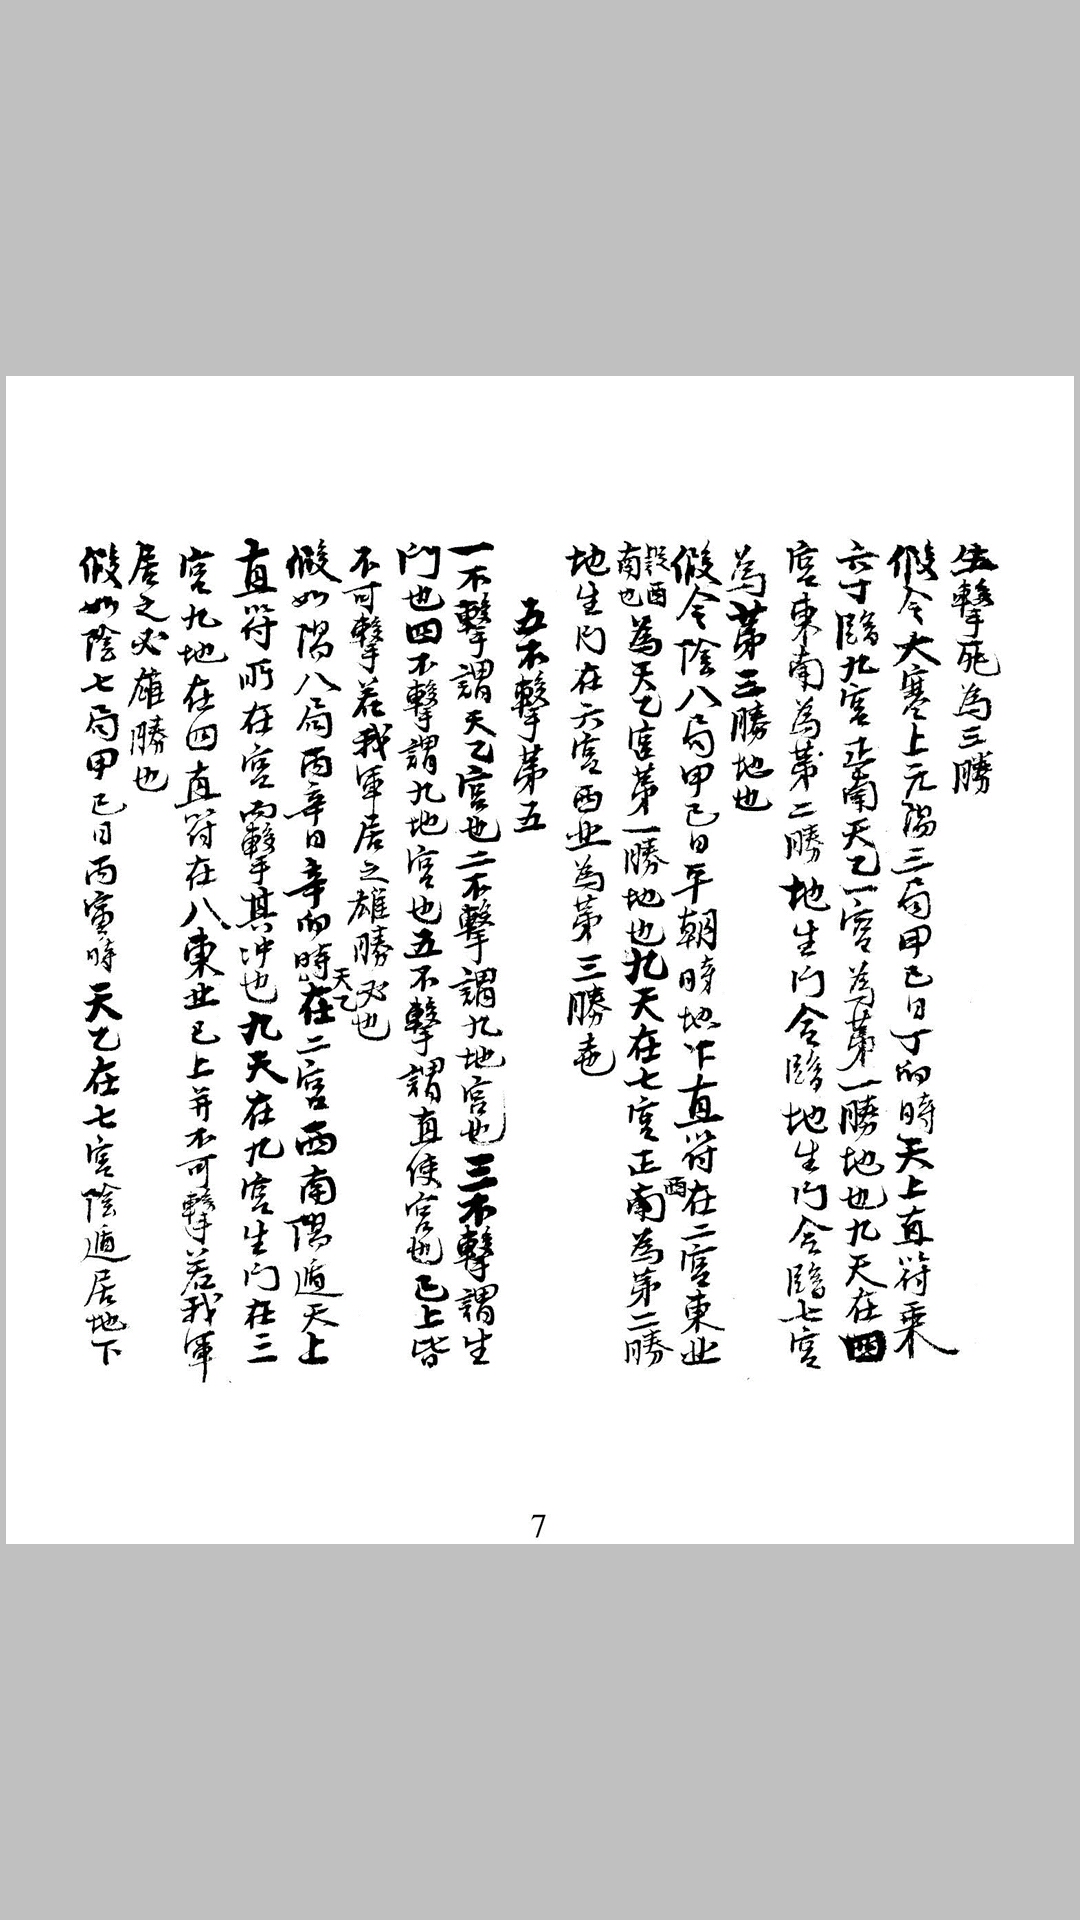 生擊死為三勝
假令大寒上元陽三局甲己日丁卯時天上直符乘
六丁臨九宮正南天乙一宮為第一勝地也九天在四
宮東南為第二勝地生門合臨地生門合臨七宮
為第三勝地也
假令陰八局甲己日平朝時地下直符在二宮東北
西
南也為天乙宮第一勝地也九天在七宮正南為第二勝
設酉
地生門在六宮西北為第三勝也
五不擊第五
一不擊謂天乙宮也二不擊謂九地宮也三不擊謂生
門也四不擊謂九地宮也五不擊謂直使宮也已上皆
不可擊若我軍居之雄勝必也
假如陽八局丙辛日辛卯時在二宮西南陽遁天上
天乙
直符所在宮而擊其沖也九天在九宮生門在三
宮九地在四直符在八東北已上并不可擊若我軍
居之必雄勝也
假如陰七局甲己日丙寅時天乙在七宮陰遁居地下
7